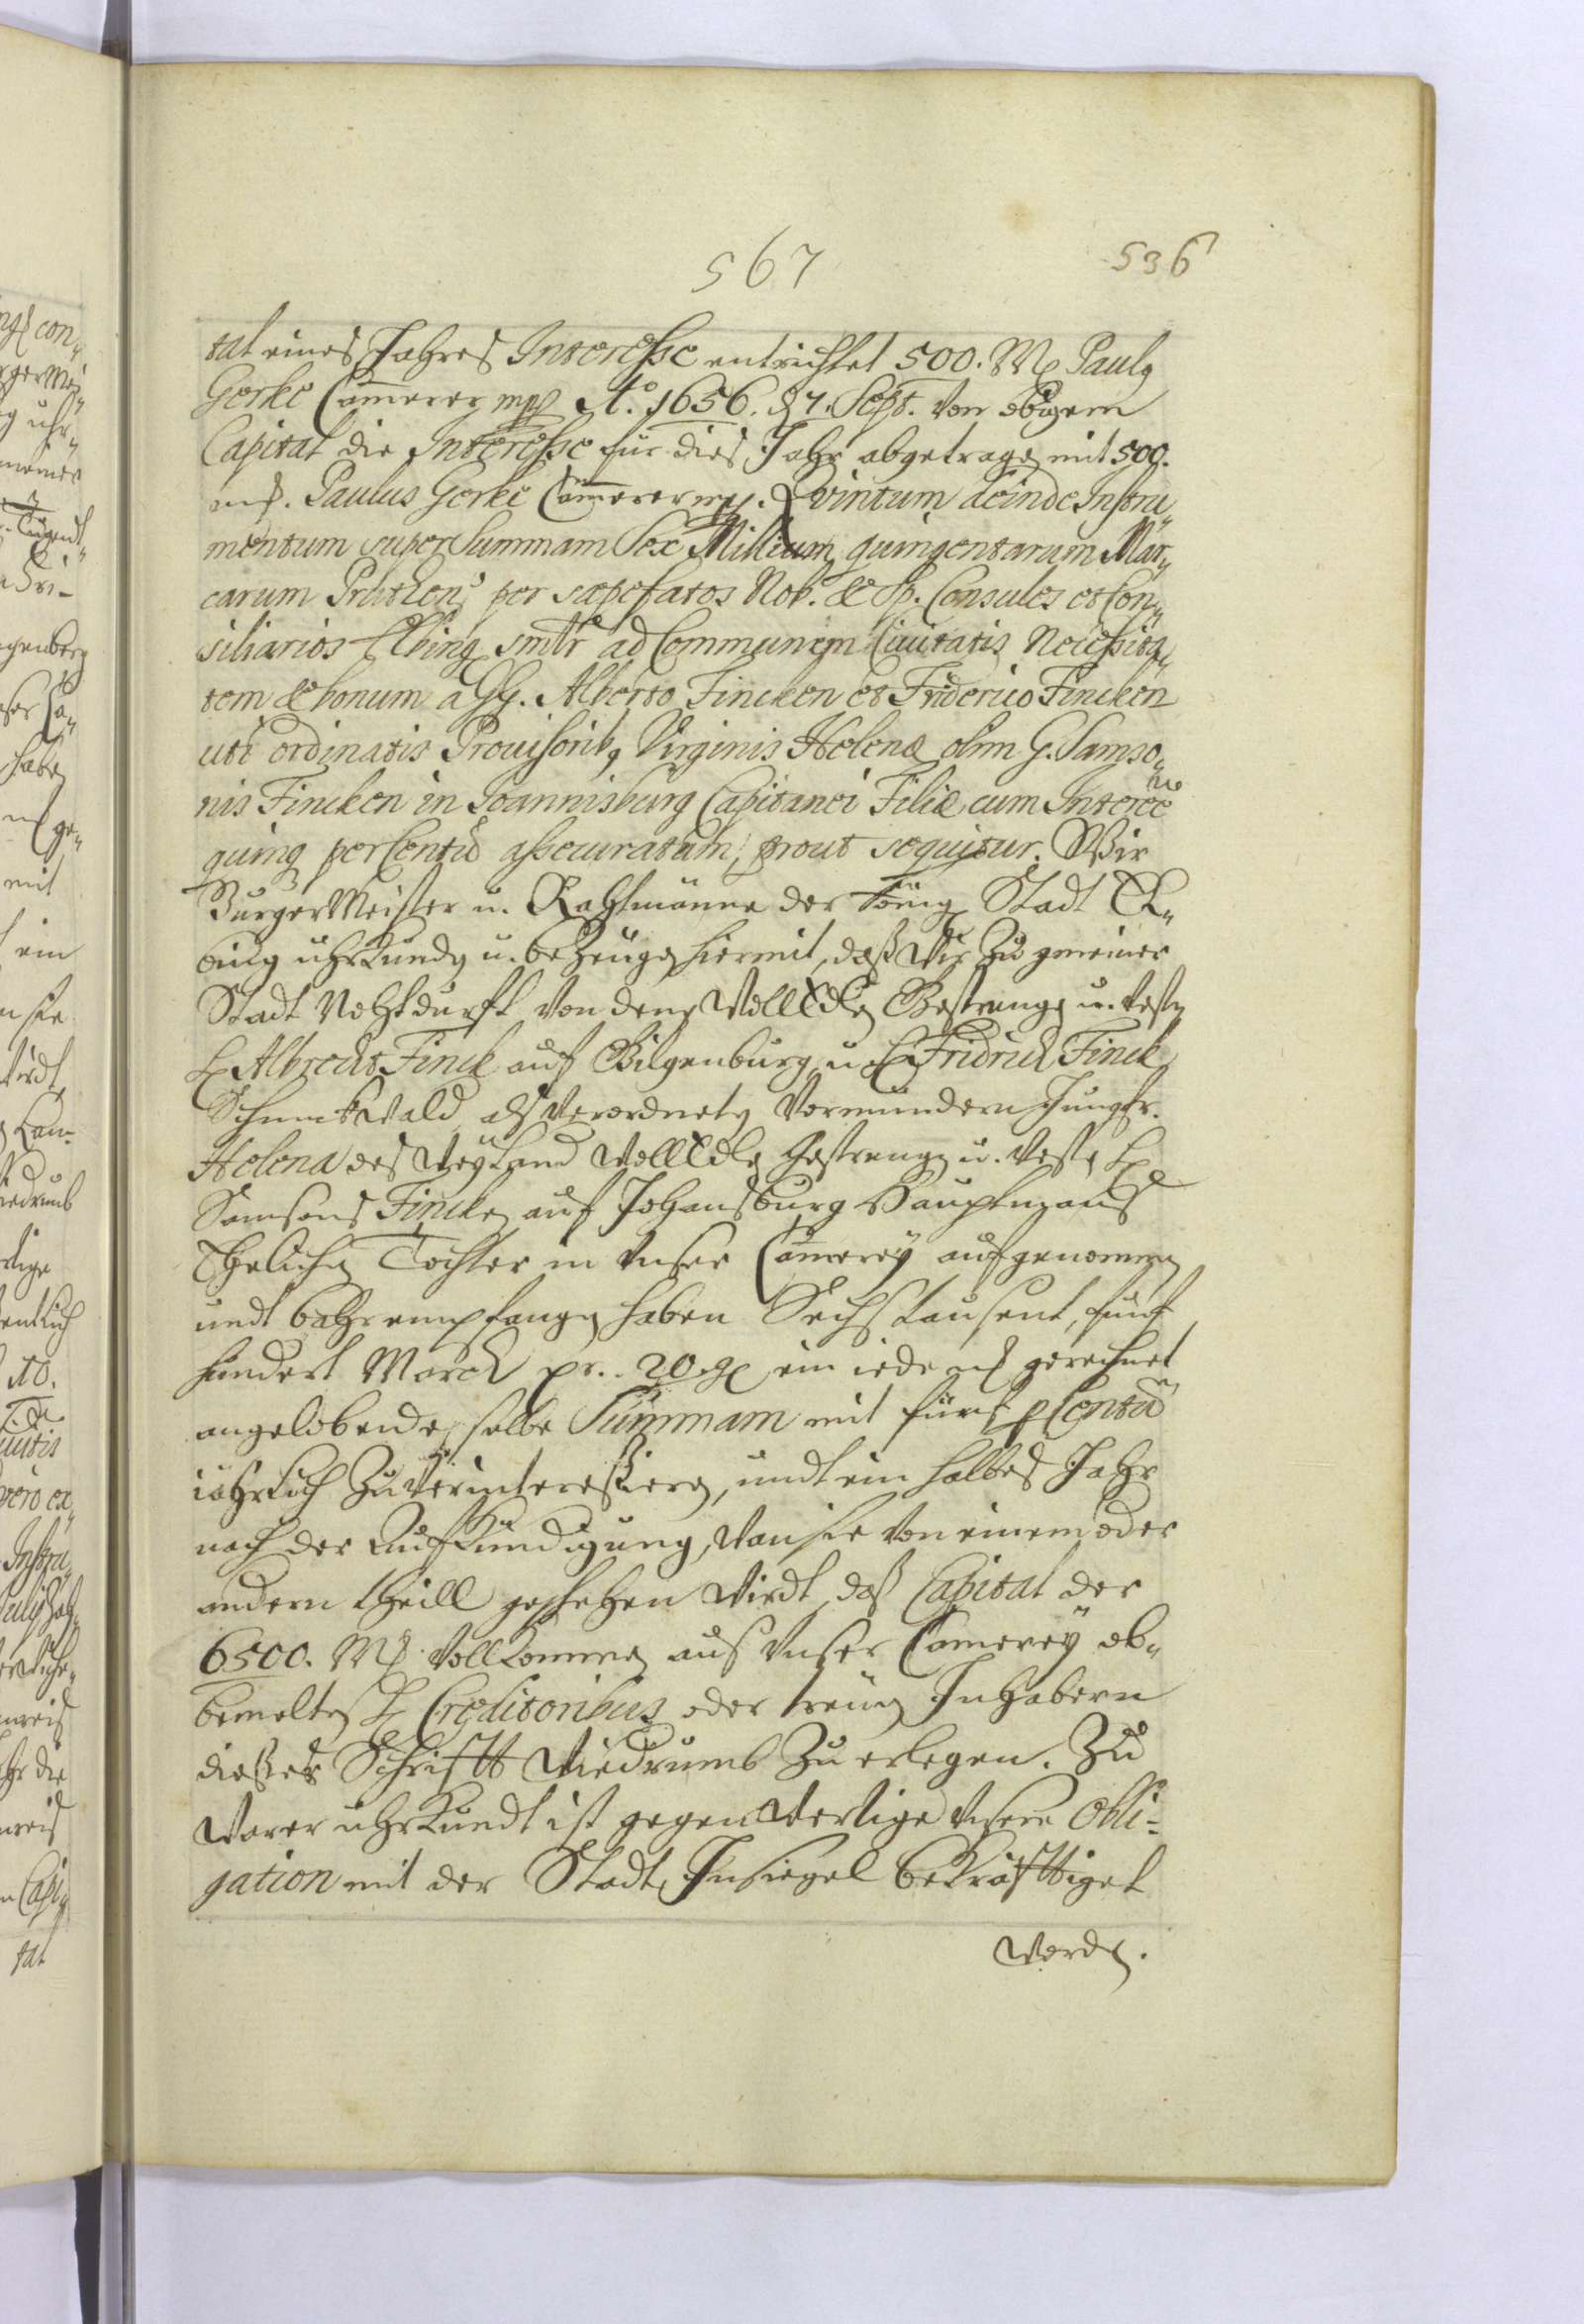 567
536
tat eines Jahres Interesse entrichtet 500. M Paulg
Gerke Cammerer mpp Ao. 1656. d 7. Sept. Von obigem
Capital die Interesse für dies Jahr abgetragen mit 500.
mk. Paulus Gerke Cammerer mpp. Qvintum deinde Instru„
mentum super Summam Sex Millium quingentarum Mar„
carum Pruten: per saepefatos Nob. & Sp. Consules et Con„
siliarios Elbing smlr ad Communem Ciuitatis Necessita„
tem & bonum a GG. Alberto Fincken et Friderico Fincken
uti ordinatis Prouisorib9 Virginis Helenæ olim G. Samso„
nis Fincken in Joannisburg Capitanei Filiæ cum Interee
quinq per Centũ assecuratum, prout sequitur. Wir
BurgerMeister u. Rahtmänne der König Stadt El„
bing uhrkunden u. bezeugen hiermit, daß Wir Zu gemeiner
Stadt Nohtdurft Von dem WollEdlen Gestrengen u. Vesten
H Albrecht Finck auf Gilgenburg, u H Fridrich Finck
Schimckwald als Verordneten Vormündern Jungfr.
Helena des Weyland WollEdlen Gestrengen u. Vesten H
Samsons Fincken auf Johansburg Hauptmans
Ehelichen Tochter in Vnser Cammerey aufgenommen
undt bahr empfangen haben Sechstausent, fünf
hundert Marck pr. 20 g ein iede mk gerechnet
angelobende, selbe Summam mit fünf p Centũ
iährlich Zu Verinteressieren, undt ein halbes Jahr
nach der Aufkündigung, Wan sie Von einem oder
andern theill geschehen Wirdt, daß Capital der
6500. M Vollkommen aus Vnser Camerey ob„
bemelten H Creditoribus oder treuen Inhabern
dießer Schrifft Wiedrumb Zu erlegen. Zu
Warer uhrkundt ist gegenWertige Vnsere Obli=
gation mit der Stadt Insiegel bekräfftiget
Worden.